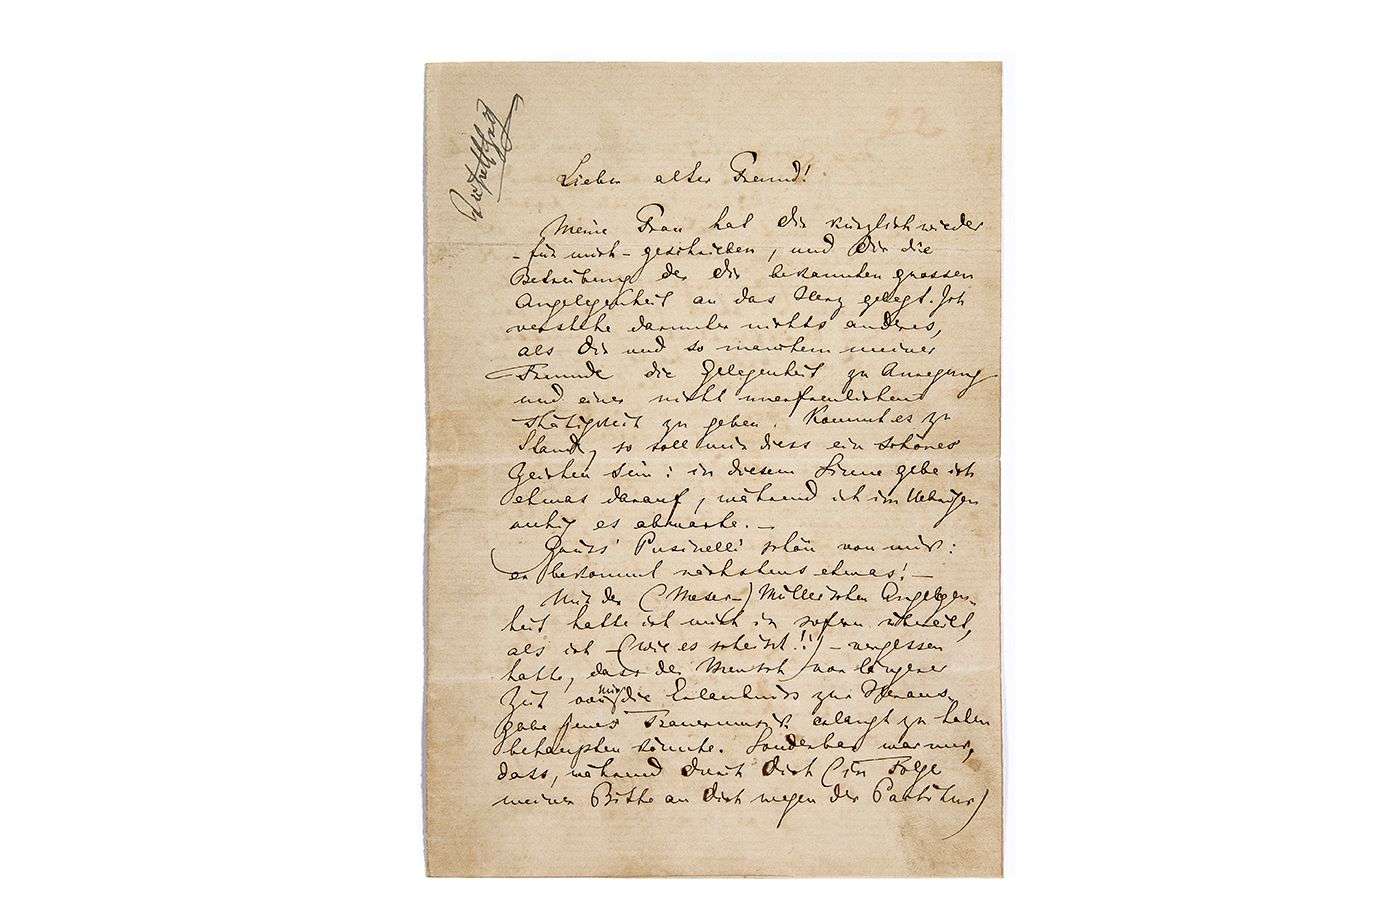 22
Lieber alter Freund!
Meine Frau hat dir kürzlich wieder
- für mich - geschrieben, und Dir die
Betreibung der dir bekannten grossen
Angelegenheit an das Herz gelegt. Ich
verstehe darunter nichts anderes,
als dir und so manchem meiner
Freunde die Gelegenheit zu Anregung
und einer nicht unerfreulichen
Thätigkeit zu geben. Kommt es zu
Stand, so soll mir diess ein schönes
Zeichen sein: in diesem Sinne gebe ich
etwas darauf, während ich im Uebrigen
ruhig es abwarte. —
Grüss' Pusinelli schön von mir:
er bekommt nächstens etwas! —
Mit der (Meser-) Müllerschen Angelegen-
heit hatte ich mich in sofern übereilt,
als ich - (wie es scheint!!) - vergessen
hatte, dass der Mensch von längerer
Zeit von mir die Erlaubniss zur Heraus-
gabe jener Trauermusik erlangt zu haben
behaupten könnte. Sonderbar war mir,
dass, während durch Dich (in Folge
meiner Bitte an Dich wegen der Partitur)